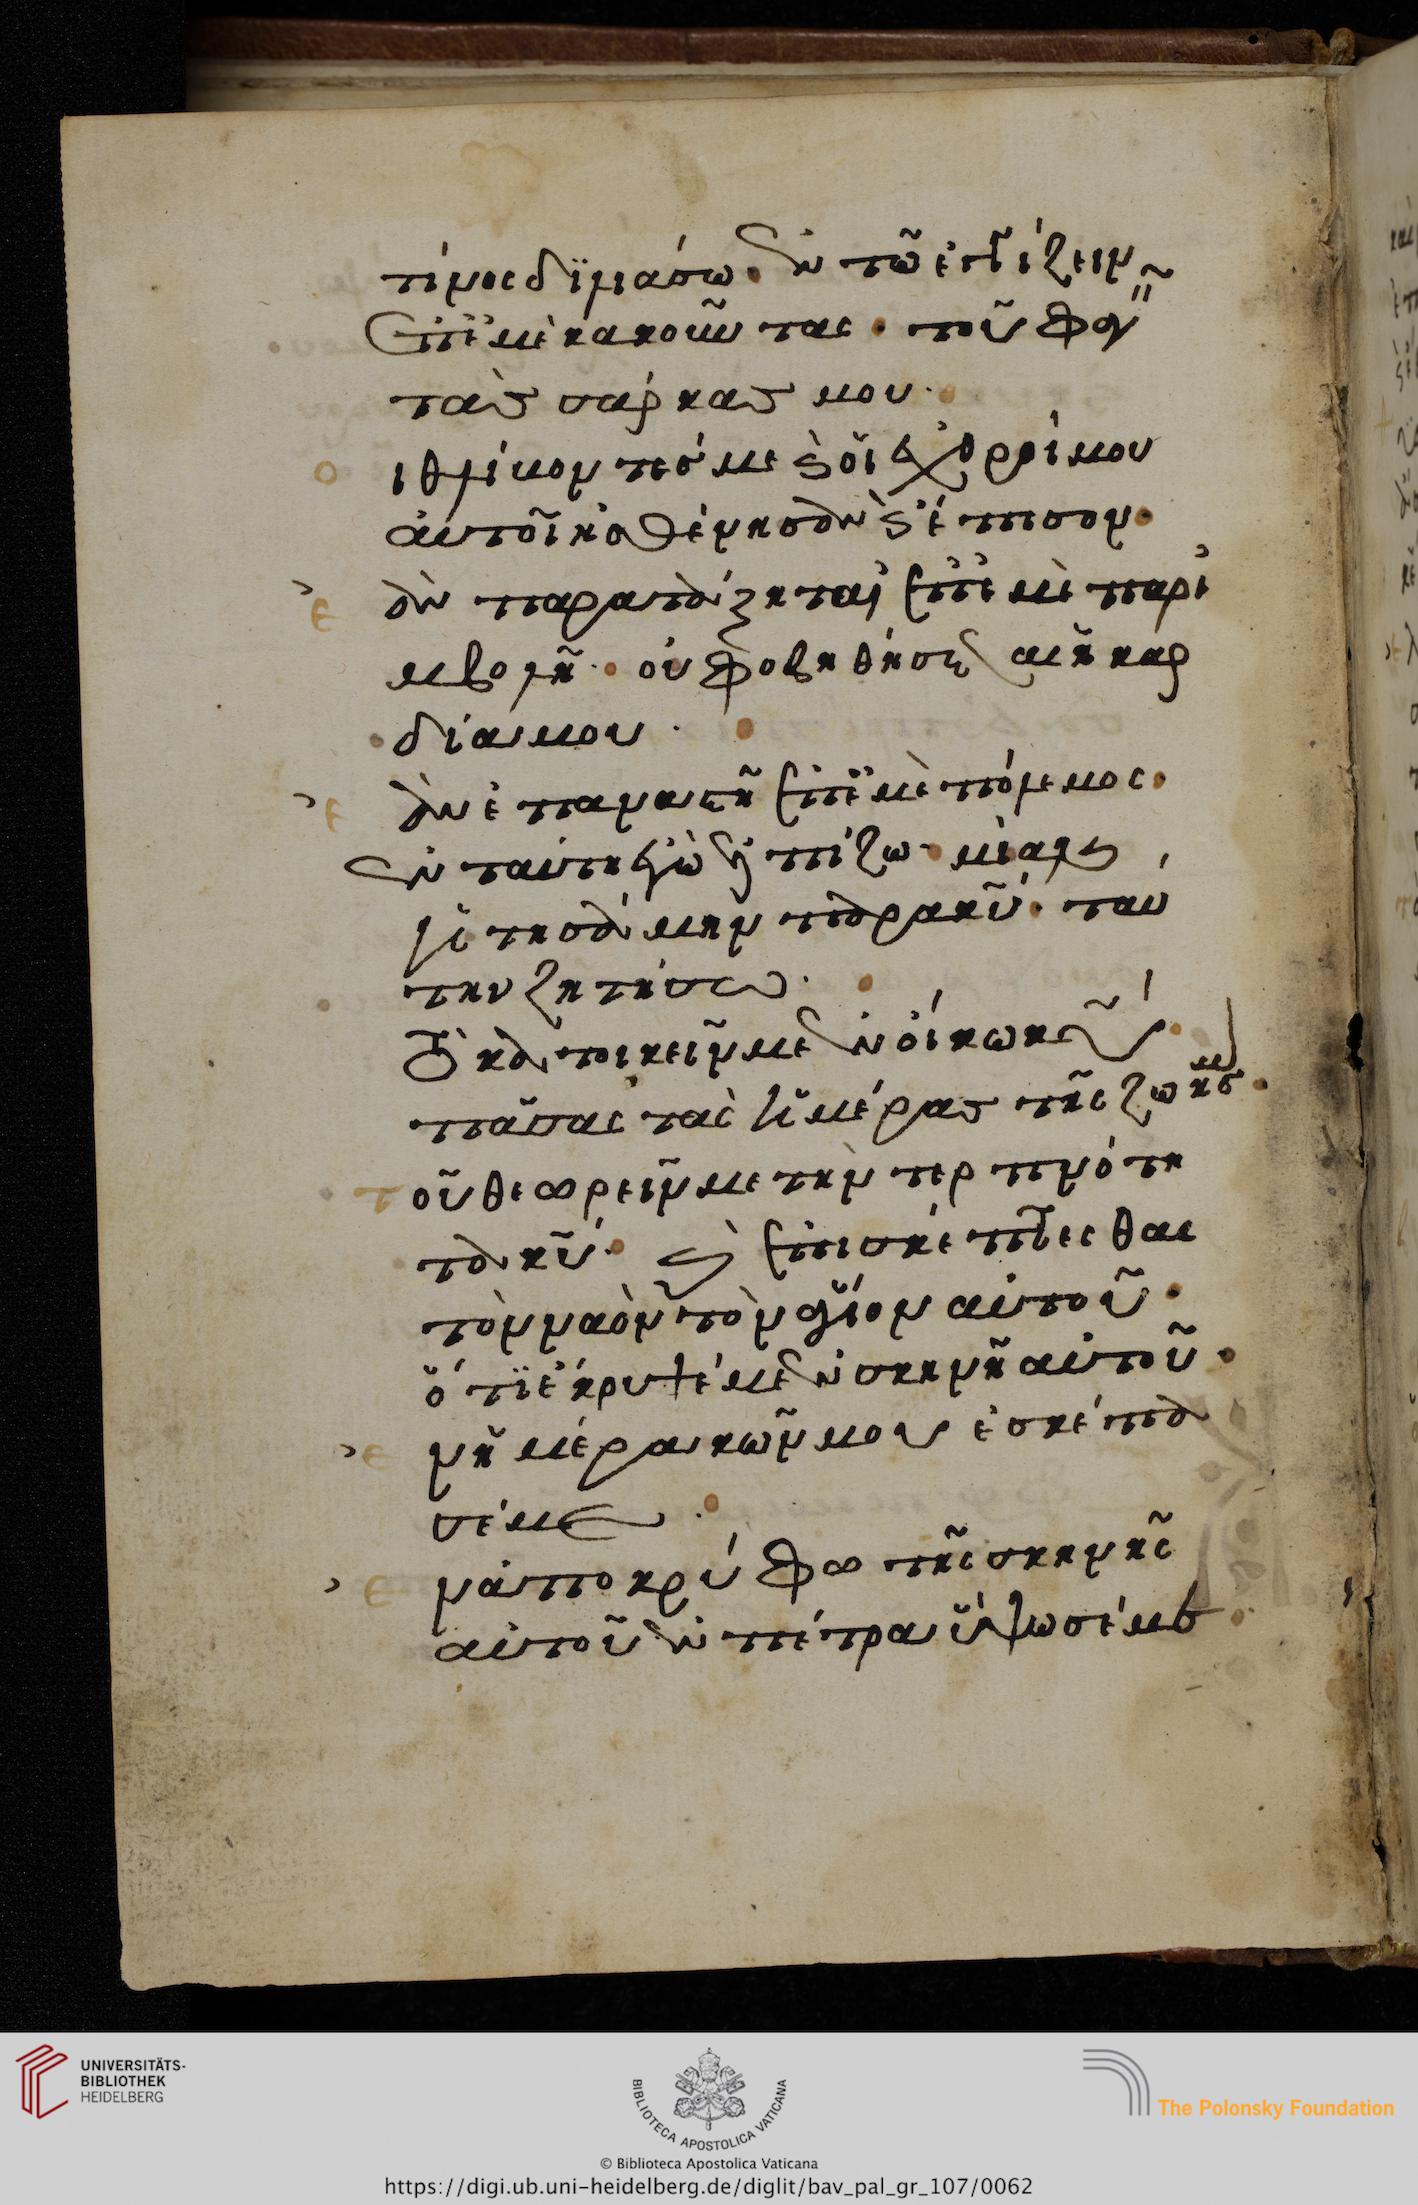 τίνος δϊλιάσω· ἐν τῶ ἐγγίζειν
ἐπ' ἐμὲ κακοῦντας· τοῦ φαγεῖν
τὰς σάρκας μου·
οἱ θλίβοντές με καὶ οἱ ἐχθροί μου
αὐτοὶ ἠσθένησαν καὶ ἔπεσον·
ἐὰν παρατάξηται ἐπ' ἐμὲ παρε
μβολῆ· οὐ φοβηθήσεται ἡ καρ
δία μου·
ἐὰν ἐπαναστῆ ἐπ' ἐμὲ πόλεμος·
ἐν ταύτη ἐγὼ ἐλπίζω· μίαν
ἠτησάμην παρὰ κῦ· ταύ
την ζητήσω·
τὸ κατοικεῖν με ἐν οἴκω κῦ·
πᾶσας τὰς ἡμέρας τῆς ζωῆς μου·
τοῦ θεωρεῖν με τὴν τερπνότη
τα κῦ· καὶ ἐπισκέπτεσθαι
τὸν ναὸν τὸν ἅγιον αὐτοῦ·
ὅτι ἔκρυψέ με ἐν σκηνῆ αὐτοῦ·
ἐν ἡμέρα κακῶν μου ἐσκέπα
σέ με·
ἐν ἀποκρύφω τῆς σκηνῆς
αὐτοῦ ἐν πέτρα ὕψωσέ με·
UNIVERSITÄTS-
BIBLIOTHEK
HEIDELBERG
BIBLIOTECA APOSTOLICA VATICANA
The Polonsky Foundation
© Biblioteca Apostolica Vaticana
https://digi.ub.uni-heidelberg.de/diglit/bav_pal_gr_107/0062